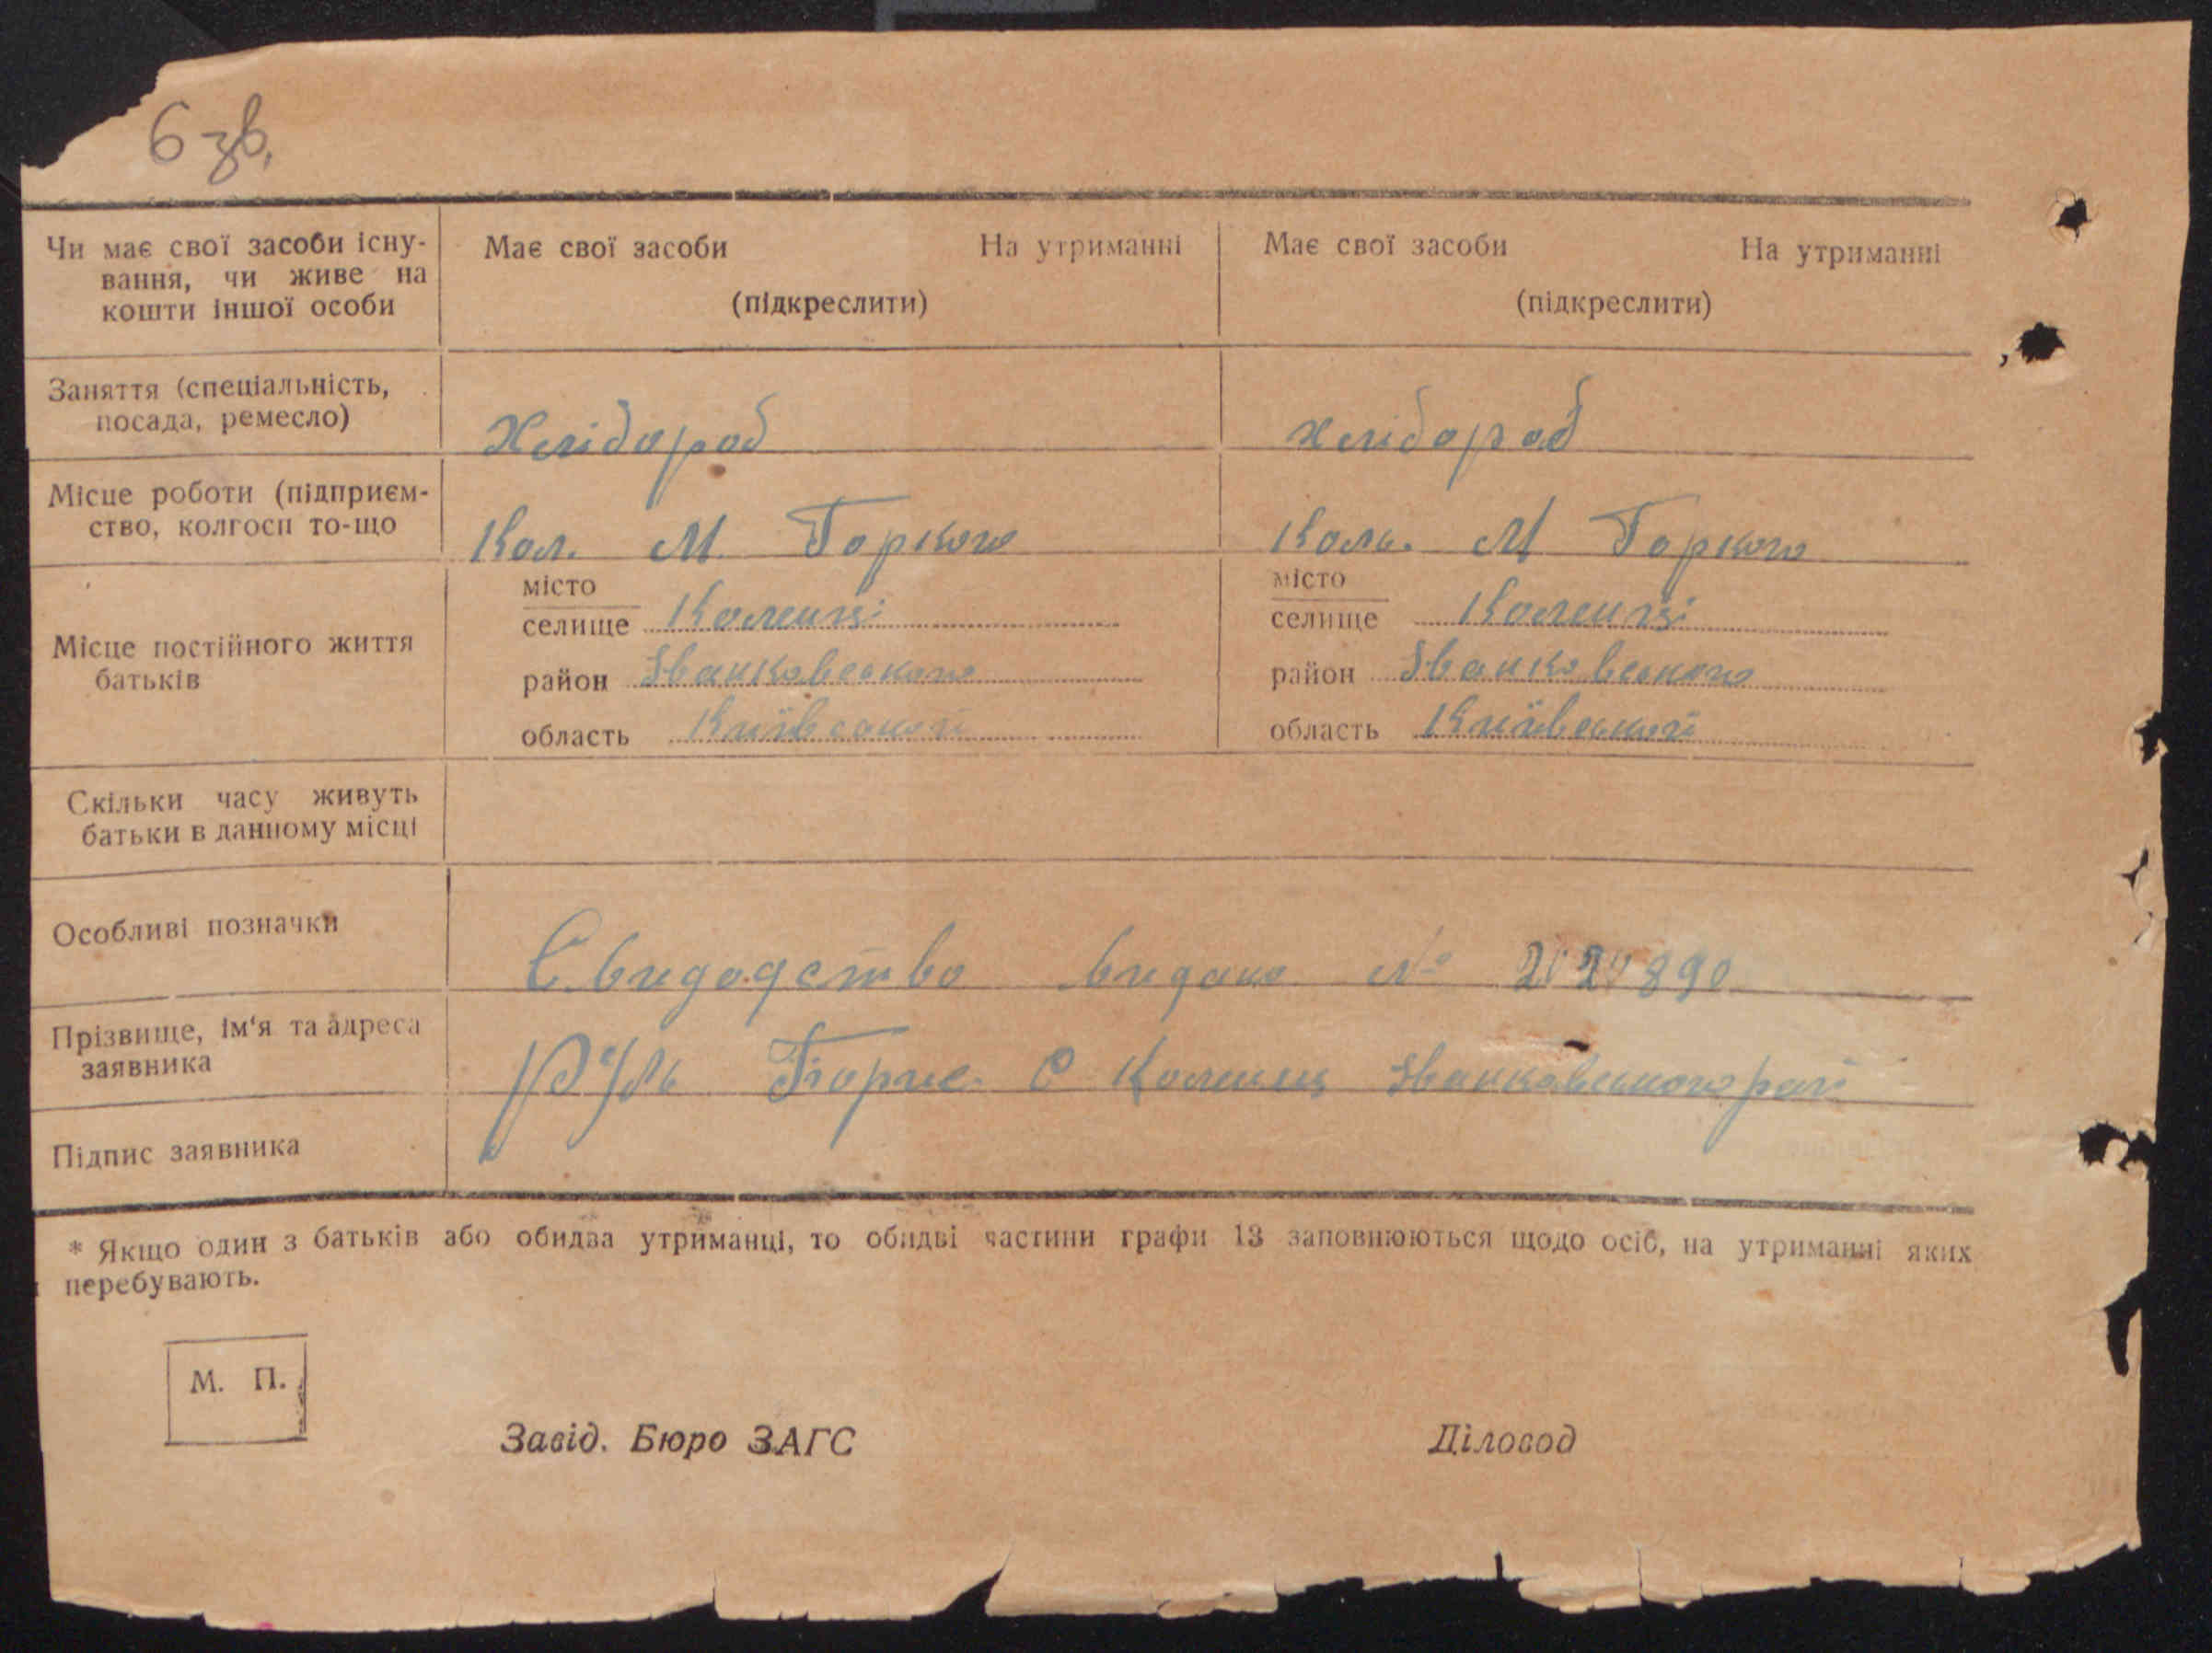 6 зв.
Чи має свої засоби існу-
вання, чи живе на
кошти іншої особи
Має свої засоби На утриманні
(підкреслити)
Має свої засоби На утриманні
(підкреслити)
Заняття (спеціальність,
посада, ремесло)
Хлібороб
хлібороб
Місце роботи (підприєм-
ство, колгосп то-що
Кол. М. Горкого
Коль. М Горкого
Місце постійного життя
батьків
місто
селище Коленці
район Іванковського
область Київської
місто
селище Коленці
район Іванковського
область Київської
Скільки часу живуть
батьки в данному місці
Особливі позначки
Свидодство видано № 2020890
Прізвище, ім'я та адреса
заявника
С Коленці Іванковського рай
Підпис заявника
* Якщо один з батьків або обидва утриманці, то обидві частини графи 13 заповнюються щодо осіб, на утриманні яких
перебувають.
М. П.
Завід. Бюро ЗАГС
Діловод